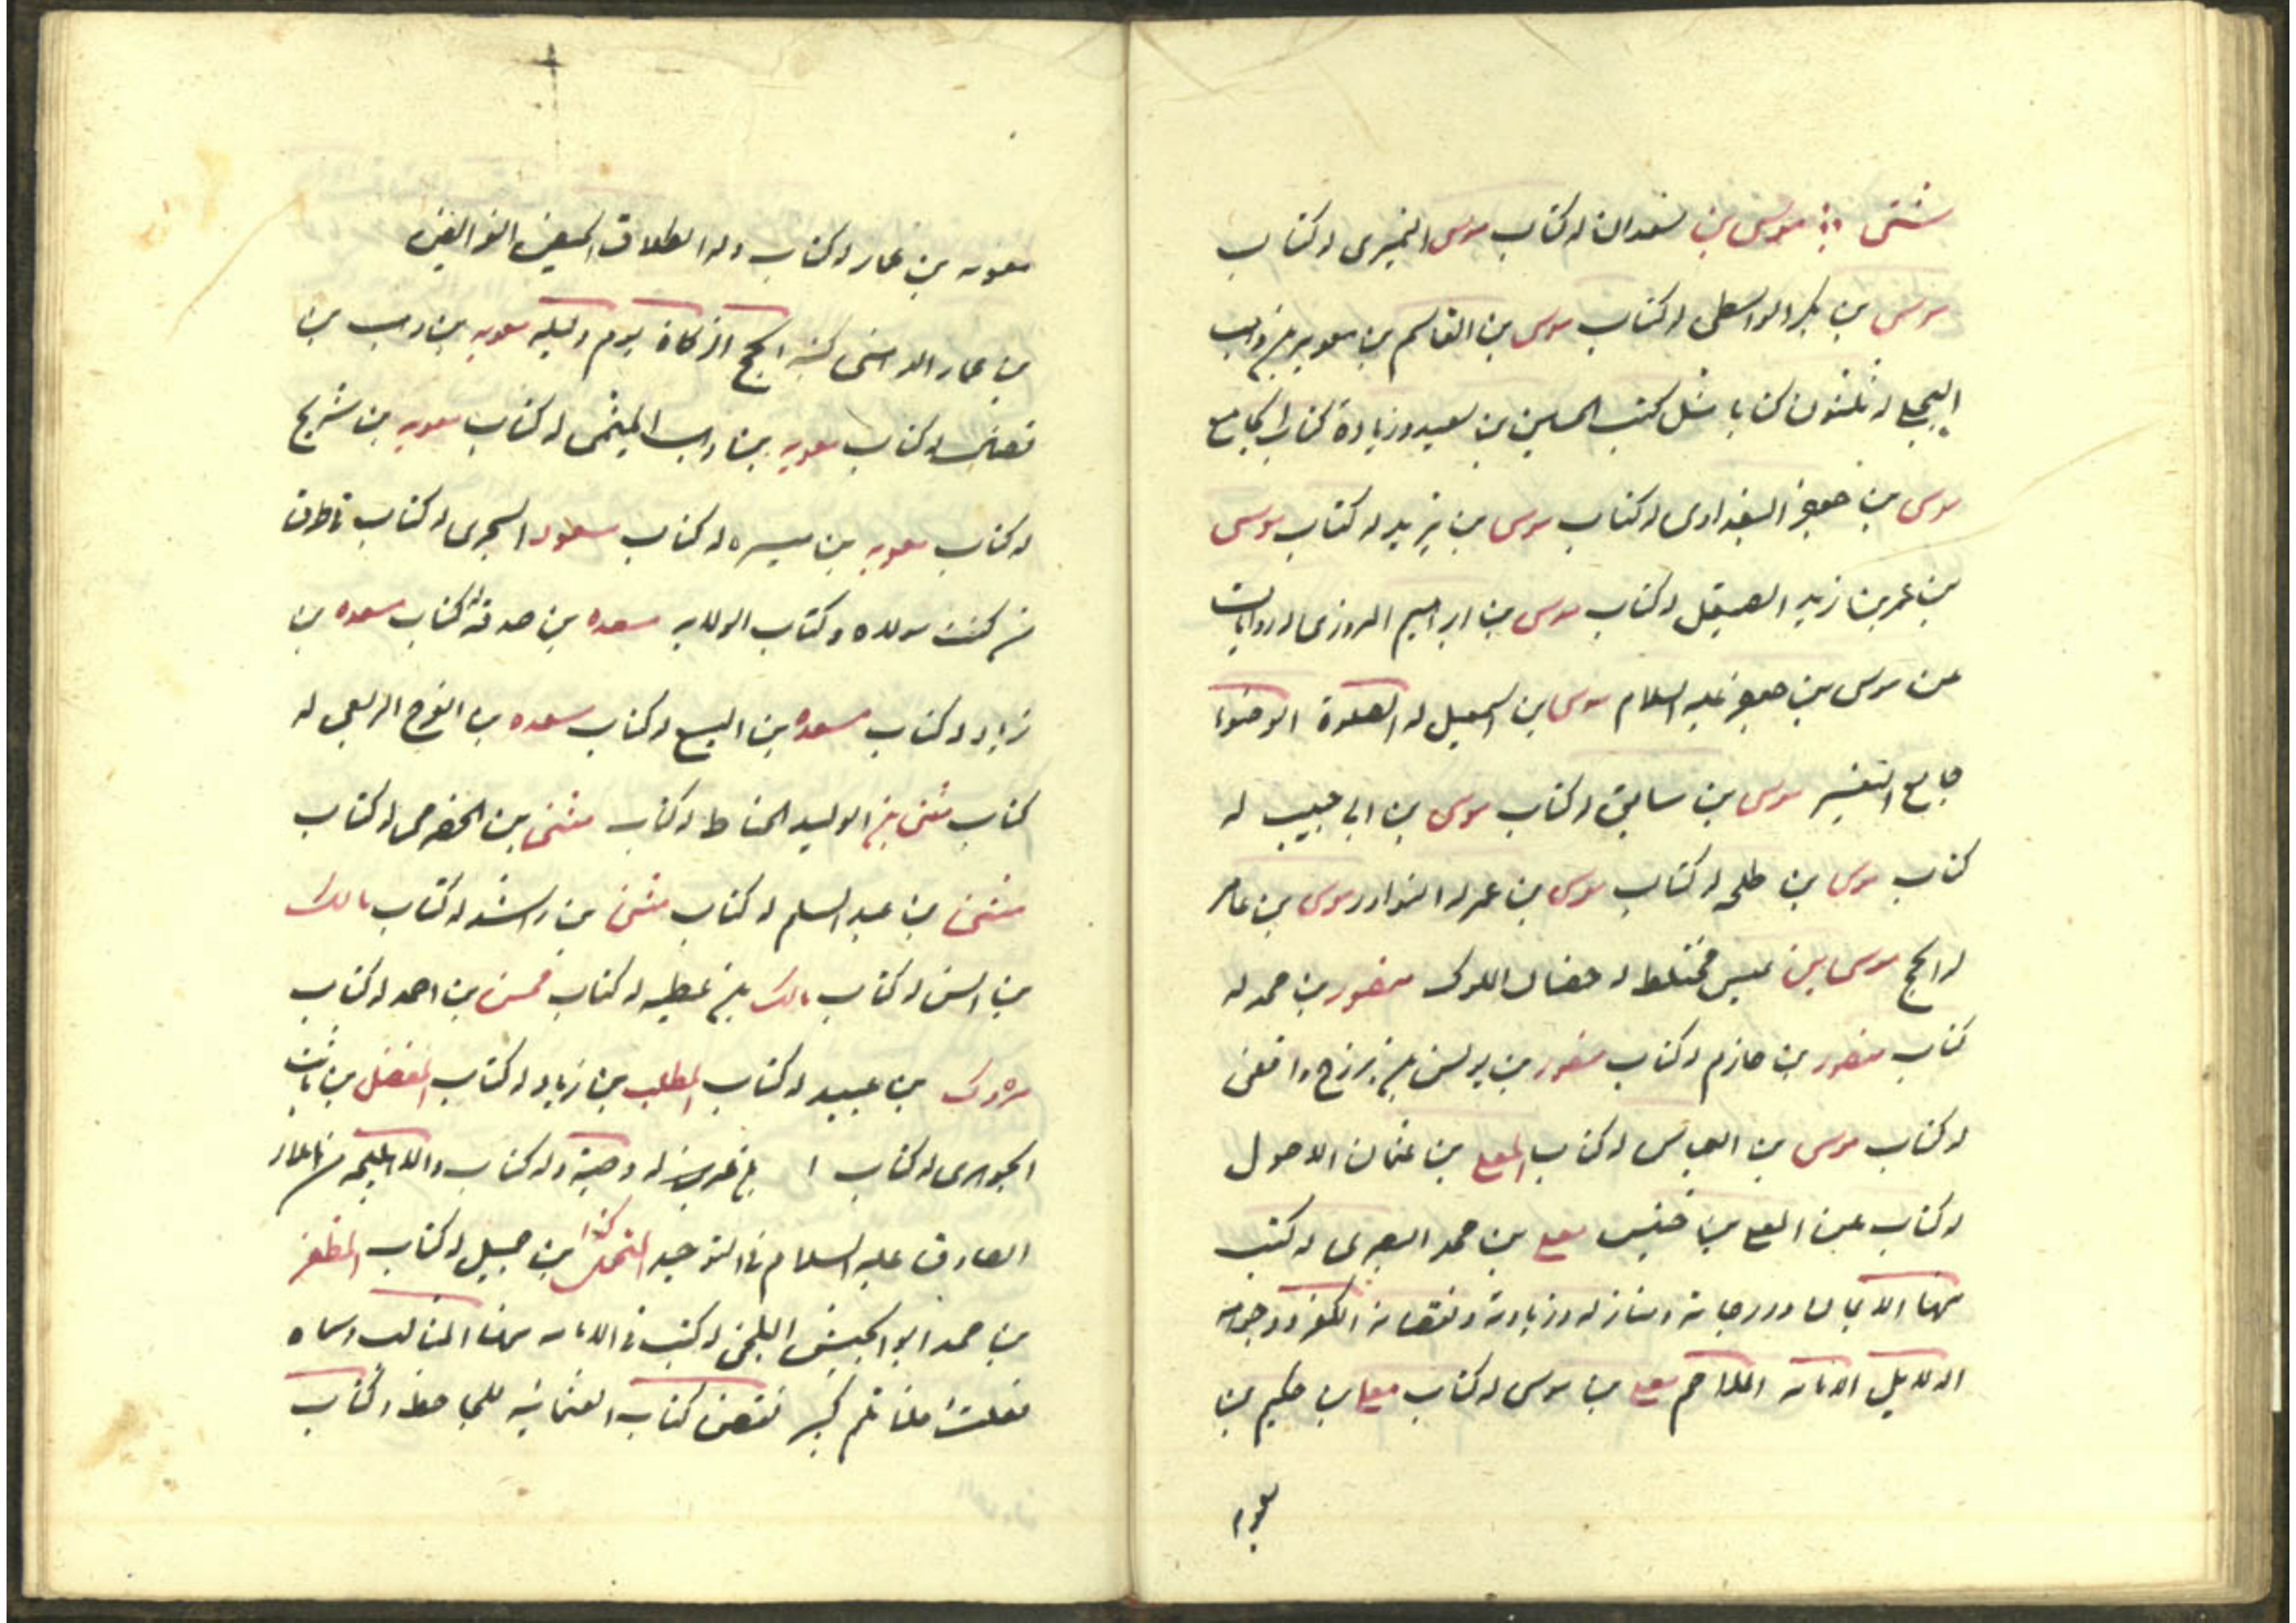 شتى موسى بن سعدان له كتاب موسى النميرى له كتاب
موسى بن بكر الواسطى له كتاب موسى بن القاسم بن معويه بن وهب
البجلى له ثلثون كتابا مثل كتب الحسين بن سعيد وزيادة كتاب الجامع
موسى بن جعفر البغدادى له كتاب موسى بن يزيد له كتاب موسى
بن عمر بن زيد الصيقل له كتاب موسى بن ابراهيم المروزى له روايات
عن موسى بن جعفر عليه السلام موسى بن اسمعيل له الصلوة الوضوء
جامع التفسير موسى بن سابق له كتاب موسى بن ابى حبيب له
كتاب موسى بن طلحه له كتاب موسى بن عمر له النوادر موسى بن عامر
له الحج موسى بن عيسى مختلط له الملوك منصور بن محمد له
كتاب منصور بن حازم له كتاب منصور بن يونس بن بزرج واقفى
له كتاب موسى بن العباس له كتاب المعلى بن عثمان الاحول
له كتاب عن المعلى بن خنيس معلى بن محمد البصرى له كتب
منها الايمان ودرجاته ومنازله وزيادته ونقصانه الكفر ووجوهه
الدلايل الامامه الملاحم معلى بن موسى له كتاب معويه بن حكيم بن
معويه بن عمار له كتاب وله الطلاق الحيض الفرايض
بن عمار الدهنى كتبه الحج الزكاة يوم وليله معويه بن وهب بن
له كتاب معويه بن وهب الميثمى له كتاب معويه بن شريح
له كتاب معويه بن ميسره له كتاب مسعود السجزى له كتاب ناطرق
من كنت مولاه وكتاب الولايه مسعده بن صدقة له كتاب مسعده بن
زياد له كتاب مسعده بن اليسع له كتاب مسعده بن الفرج الربعى له
كتاب مثنى بن الوليد الحناط له كتاب مثنى بن الحضرمى له كتاب
مثنى بن عبد السلم له كتاب مثنى بن راشد له كتاب مالك
بن انس له كتاب مالك بن عطيه له كتاب محسن بن احمد له كتاب
مروك بن عبيد له كتاب المطلب بن زياد له كتاب المفضل بن
الجوهرى له كتاب بن عمر له وصية وله كتاب والاهليلجه من املاء
الصادق عليه السلام فى التوحيد بن جميل له كتاب المظفر
بن محمد ابو الجيش البلخى له كتب فى الامامه منها المثالب وسماه
فعلت فلا تلم كبير نقض كتاب العثمانيه للجاحظ وكتاب